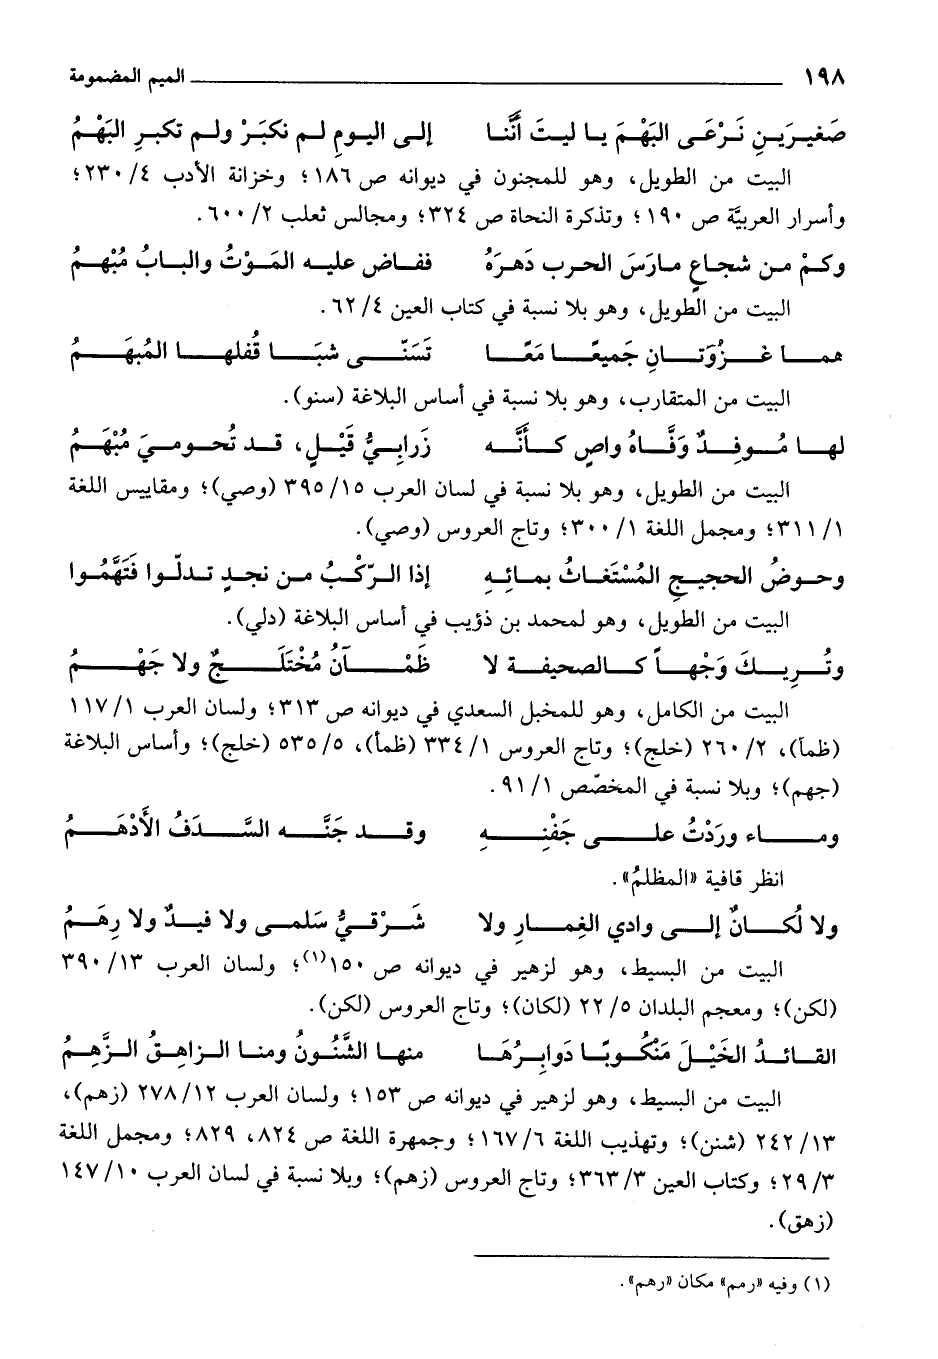 ١٩٨ الميم المضمومة
صَغيرَينِ نَرْعَى البَهْمَ يا ليتَ أنَّنا إلى اليومِ لم نكبَرْ ولم تكبرِ البَهْمُ
البيت من الطويل، وهو للمجنون في ديوانه ص ١٨٦؛ وخزانة الأدب ٤/ ٢٣٠؛
وأسرار العربيَّة ص ١٩٠؛ وتذكرة النحاة ص ٣٢٤؛ ومجالس ثعلب ٢/ ٦٠٠.
وكمْ من شجاعٍ مارَسَ الحرب دَهرَهُ ففاض عليه المَوْتُ والبابُ مُبْهمُ
البيت من الطويل، وهو بلا نسبة في كتاب العين ٤/ ٦٢.
هما غزْوَتانِ جَميعًا مَعًا تَسَنّى شبَا قُفلها المُبهَمُ
البيت من المتقارب، وهو بلا نسبة في أساس البلاغة (سنو).
لها مُوفِدٌ وَفَّاهُ واصٍ كأنَّه زَرابيُّ قَيْلٍ، قد تُحوميَ مُبْهَمُ
البيت من الطويل، وهو بلا نسبة في لسان العرب ١٥/ ٣٩٥ (وصي)؛ ومقاييس اللغة
١/ ٣١١؛ ومجمل اللغة ١/ ٣٠٠؛ وتاج العروس (وصي).
وحوضُ الحجيجِ المُسْتَغاثُ بمائِهِ إذا الرّكْبُ من نجدٍ تدلّوا فَتَهَّمُوا
البيت من الطويل، وهو لمحمد بن ذؤيب في أساس البلاغة (دلي).
وتُرِيكَ وَجْهاً كالصحيفة لا ظَمْآنُ مُخْتَلَجٌ ولا جَهْمُ
البيت من الكامل، وهو للمخبل السعدي في ديوانه ص ٣١٣؛ ولسان العرب ١/ ١١٧
(ظمأ)، ٢/ ٢٦٠ (خلج)؛ وتاج العروس ١/ ٣٣٤ (ظمأ)، ٥/ ٥٣٥ (خلج)؛ وأساس البلاغة
(جهم)؛ وبلا نسبة في المخصّص ١/ ٩١.
وماء وردْتُ على جَفْنِهِ وقد جَنَّه السَّدَفُ الأَدْهَمُ
انظر قافية «المظلمُ».
ولا لُكانٌ إلى وادي الغِمارِ ولا شَرْقيُّ سَلمى ولا فيدٌ ولا رِهَمُ
البيت من البسيط، وهو لزهير في ديوانه ص ١٥٠(١)؛ ولسان العرب ١٣/ ٣٩٠
(لكن)؛ ومعجم البلدان ٥/ ٢٢ (لكان)؛ وتاج العروس (لكن).
القائدُ الخَيْلَ مَنْكُوبًا دَوابِرُهَا منها الشَّنُونُ ومنا الزاهِقُ الزَّهِمُ
البيت من البسيط، وهو لزهير في ديوانه ص ١٥٣؛ ولسان العرب ١٢/ ٢٧٨ (زهم)،
١٣/ ٢٤٢ (شنن)؛ وتهذيب اللغة ٦/ ١٦٧؛ وجمهرة اللغة ص ٨٢٤، ٨٢٩؛ ومجمل اللغة
٣/ ٢٩؛ وكتاب العين ٣/ ٣٦٣؛ وتاج العروس (زهم)؛ وبلا نسبة في لسان العرب ١٠/ ١٤٧
(زهق).
(١) وفيه «رمم» مكان «رهم».